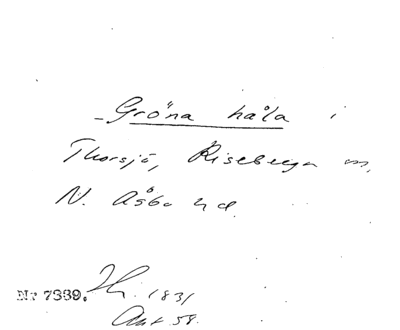 Gröna håla i
Thorsjö, Riseberga sn,
N. Åsbo hd.
Nr 7389. 1831
Akt 58.